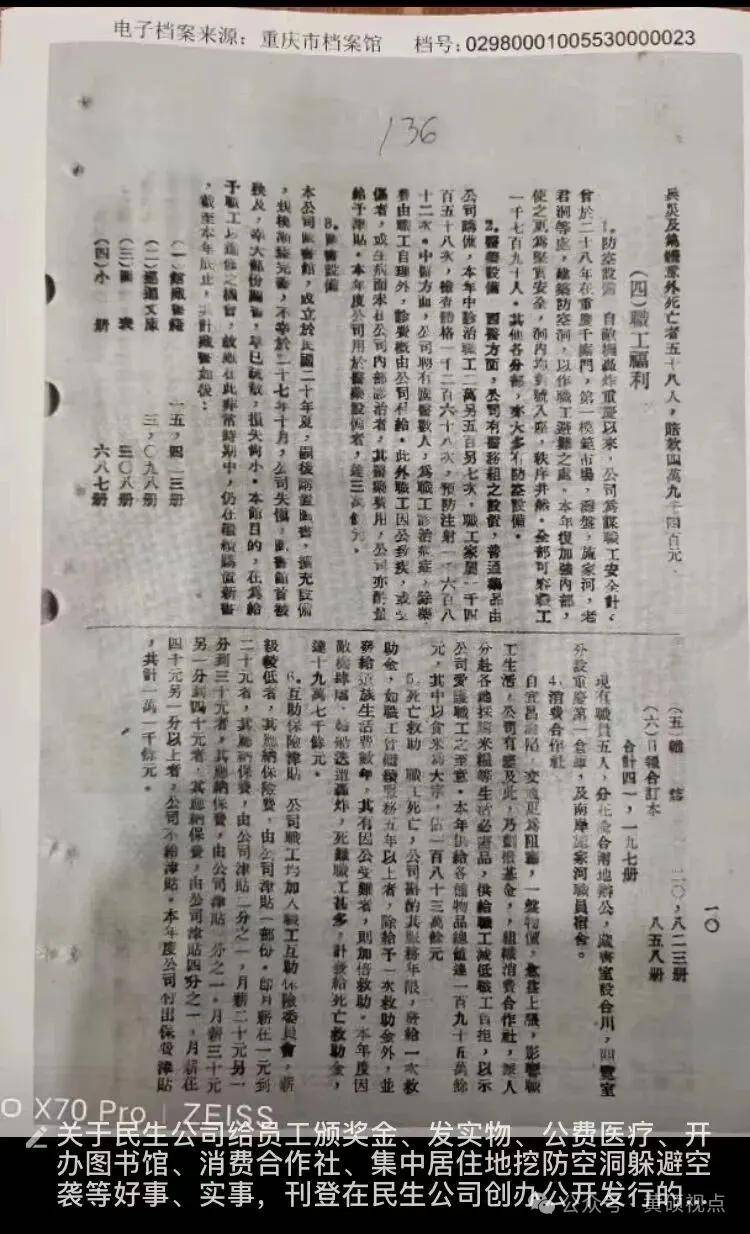 电子档案来源：重庆市档案馆 档号：02980001005530000023
136
兵災及其他意外死亡者五十八人，賠款四萬九千四百元。
（四）職工福利
1.防空設備 自敵機轟炸重慶以來，公司為謀職工安全計，
曾於二十八年在重慶千廝門，第一模範市場，，施家河，老
君洞等處，建築防空洞，以作職工避難之處。本年復加強內部，
使之更為堅實安全，洞內均對號入座，秩序井然。全部可容職工
一千七百九十人。其他各分部，亦大多有防空設備。
2.醫藥設備 西醫方面，公司有醫務組之設置，普通藥品由
公司購備，本年中診治職工二萬另五百另七次，職工家屬一千四
百五十八次，檢查體格一千二百六十八次，預防注射一一六百八
十二次。中醫方面，公司聘有國醫數人，為職工診治病症，除藥
費由職工自理外，診費概由公司付給。此外職工因公致疾，或受
傷者，或生病而未在公司內部診治者，其醫藥費用，公司亦酌量
給予津貼。本年度公司用於醫藥設備者，達三萬餘元。
3.圖書設備
本公司圖書館，成立於民國二十年夏，嗣後購置圖書，擴充設備
，規模漸臻完善，不幸於二十七年十月，公司失慎，圖書館首被
殃及，幸大部份圖書，早已疏散，損失尚小。本館目的，在為給
予職工以進修之機會，故雖在此非常時期中，仍在繼續購置新書
，截至本年底止，共計藏書如後：
（一）館藏書籍 一五，四二三册
（二）巡迴文庫 三，〇九八册
（三）圖 表 三〇八册
（四）小 册 六八七册
一〇
（五）雜 誌 二〇，八二三册
（六）日報合訂本 八五八册
合計四一，一九七册
現有職員五人，分在渝合兩地辦公，藏書室設合川，閱覽室
分設重慶第一倉庫，及南岸施家河職員宿舍。
4.消費合作社
自宜昌淪陷，交通更為阻塞，一般物價，愈益上漲，影響職
工生活，公司有鑒及此，乃劃撥基金，組織消費合作社，派人
分赴各地採購米糧等生活必需品，供給職工減低職工負担，以示
公司愛護職工之至意。本年供給各種物品總值達一百九十五萬餘
元，其中以食米為大宗，佔一百八十三萬餘元
5.死亡救助 職工死亡，公司斟酌其服務年限，發給一次救
助金，如職工曾繼續服務五年以上者，除給予一次救助金外，並
發給遺族生活費數年，其有因公受難者，則加倍救助。本年度因
敵機肆虐，輪船迭遭轟炸，死難職工甚多，計發給死亡救助金，
達十九萬七千餘元。
6.互助保險津貼 公司職工均加入職工互助保險委員會，薪
級較低者，其應納保險費，由公司津貼一部份。即月薪在一元到
二十元者，其應納保費，由公司津貼二分之一，月薪二十元另一
分到三十元者，其應納保費，由公司津貼三分之一。月薪三十元
另一分到四十元者，其應納保費，由公司津貼四分之一，月薪在
四十元另一分以上者，公司不給津貼。本年度公司付出保費津貼
，共計一萬一千餘元。
X70 Pro | ZEISS
关于民生公司给员工颁奖金、发实物、公费医疗、开
办图书馆、消费合作社、集中居住地挖防空洞躲避空
袭等好事、实事，刊登在民生公司创办公开发行的...
公众号·真硕视点